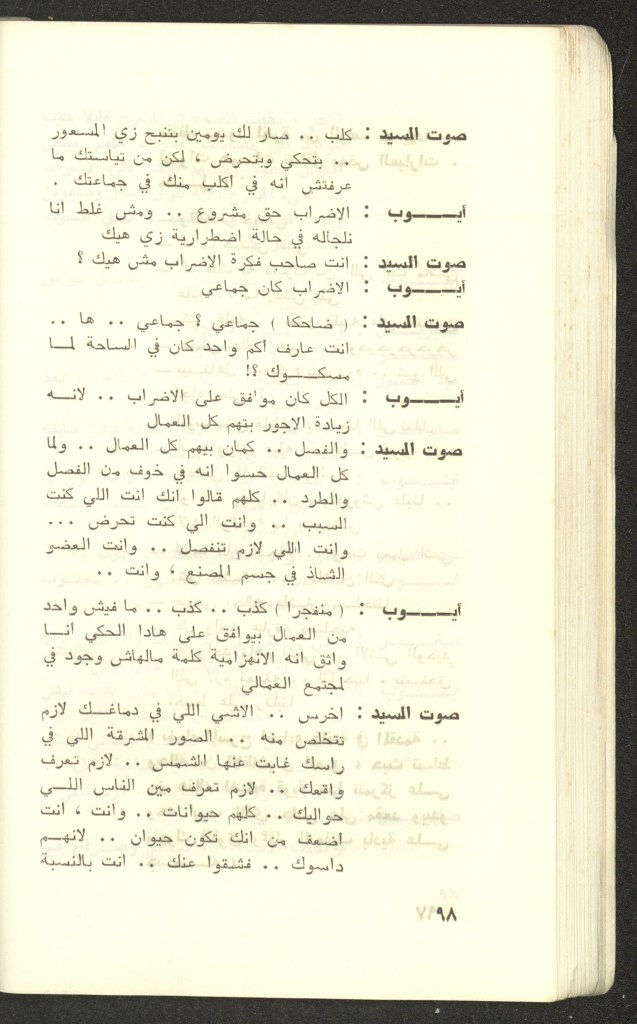 صوت السيد : كلب .. صار لك يومين بتنبح زي المسعور
.. بتحكي وبتحرض ، لكن من تياستك ما
عرفتش انه في اكلب منك في جماعتك .
أيـــوب : الاضراب حق مشروع .. ومش غلط انا
نلجأله في حالة اضطرارية زي هيك
صوت السيد : انت صاحب فكرة الاضراب مش هيك ؟
أيـــوب : الاضراب كان جماعي
صوت السيد : ( ضاحكا ) جماعي ؟ جماعي .. ها ..
انت عارف اكم واحد كان في الساحة لمـا
مسكـــوك ؟!
أيـــوب : الكل كان موافق على الاضراب .. لانـــه
زيادة الاجور بتهم كل العمال
صوت السيد : والفصل .. كمان بيهم كل العمال .. ولما
كل العمال حسوا انه في خوف من الفصل
والطرد .. كلهم قالوا انك انت اللي كنت
السبب .. وانت الي كنت تحرض ...
وانت اللي لازم تنفصل .. وانت العضو
الشاذ في جسم المصنع ، وانت ..
أيـــوب : ( منفجرا ) كذب .. كذب .. ما فيش واحد
من العمال بيوافق على هادا الحكي أنـــا
واثق انه الانهزامية كلمة مالهاش وجود في
لمجتمع العمالي
صوت السيد : اخرس .. الاشي اللي في دماغـــك لازم
تتخلص منه .. الصور المشرقة اللي في
راسك غابت عنها الشمس .. لازم تعرف
واقعك .. لازم تعرف مين الناس اللـــي
حواليك .. كلهم حيوانات .. وانت ، انت
اضعف من انك تكون حيوان .. لانهـــم
داسوك .. فشقوا عنك .. انت بالنسبة
٩٨